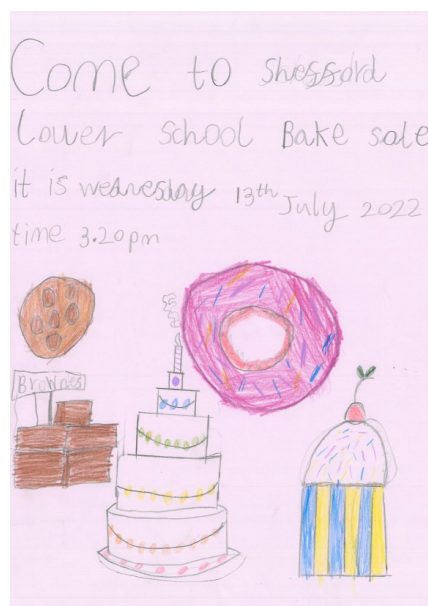 Come to Shefford
Lower school Bake sale
it is wednesday 13th July 2022
time 3.20pm
Brownes